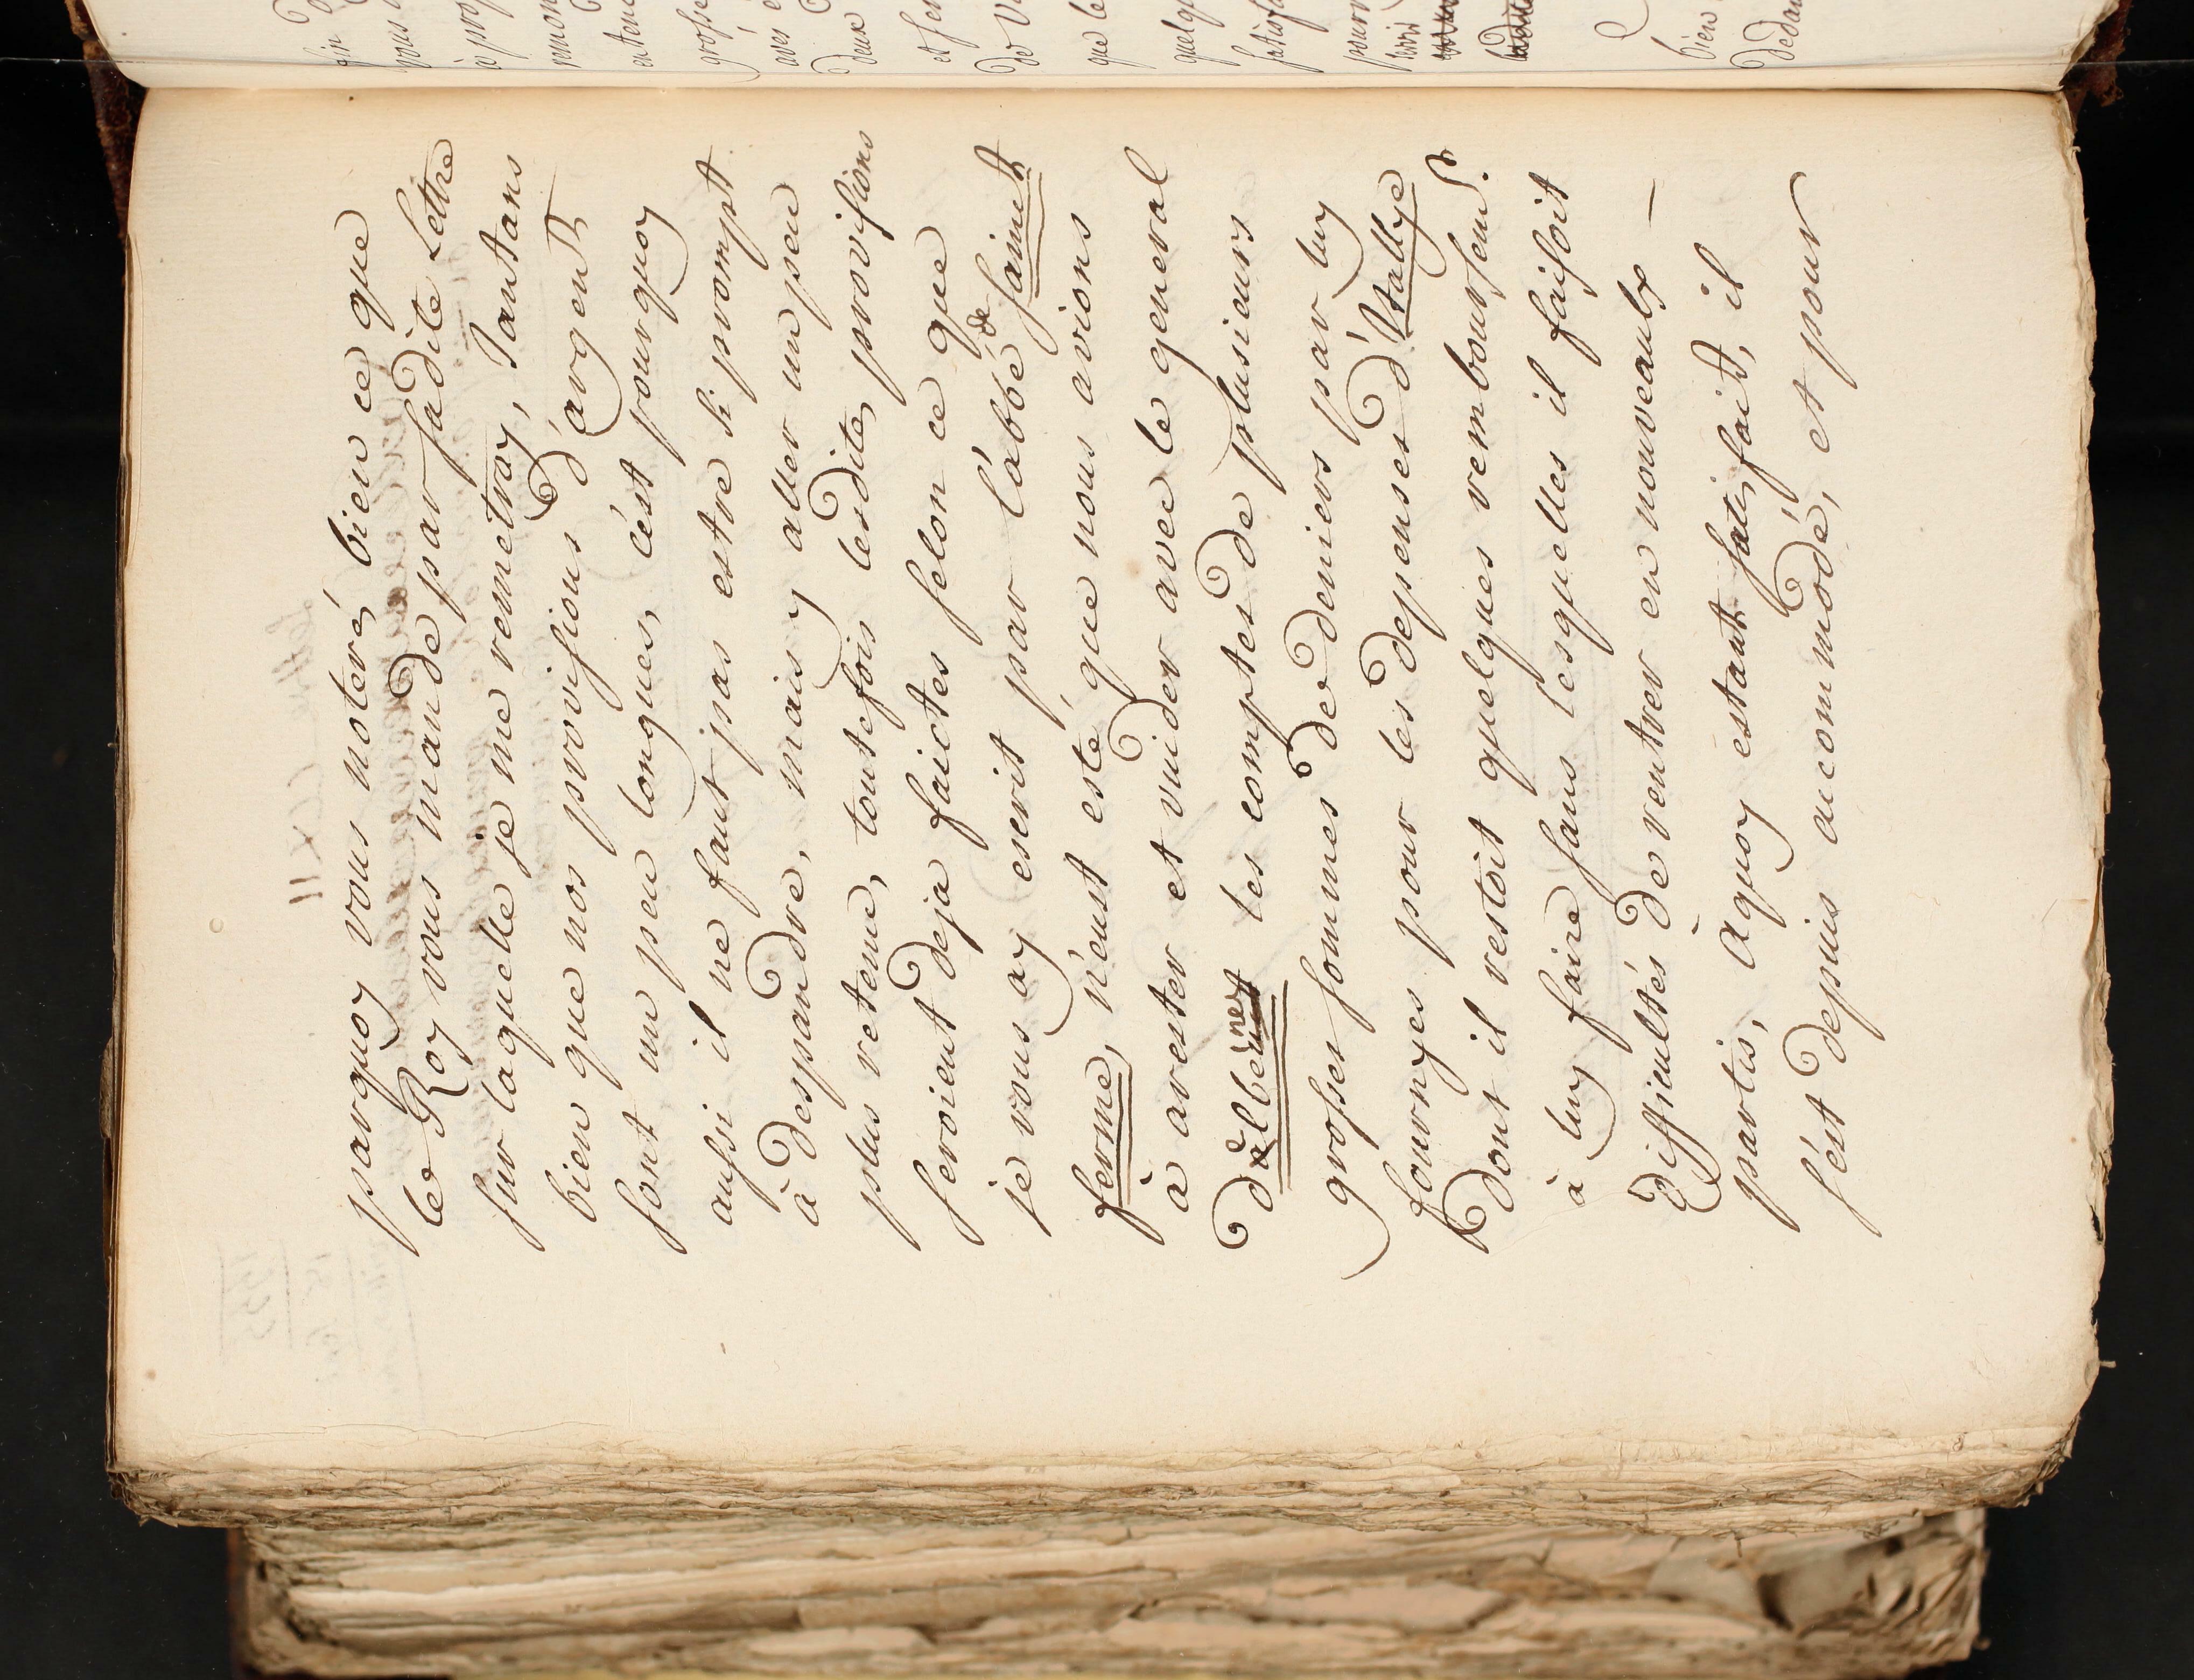 parquoy vous noterés bien ce que
le Roy vous mande par sadite Lettre
sur laquelle je me remettray, Jantans
bien que nos provisions d'argent
sont un peu longues, c'est pourquoy
aussi il ne faut pas estre si prompt
à despandre, mais y aller un peu
plus retenu, toutefois lesdites provisions
seroient deja faictes selon ce que
je vous ay escrit par l'abbé de saint
ferme, n'eust esté que nous avions
à arester et vuider avec le general
d'elbene les comptes de plusieurs
grosses sommes de deniers par luy
fournyes pour les depenses d'Itallye
dont il restoit quelques remboursem.ts
à luy faire sans lesquelles il faisoit
difficultés de rentrer en nouveaulx
partis, Aquoy estant satisfait, il
s'est depuis accommodé, et pour
fin
et
que le
bien